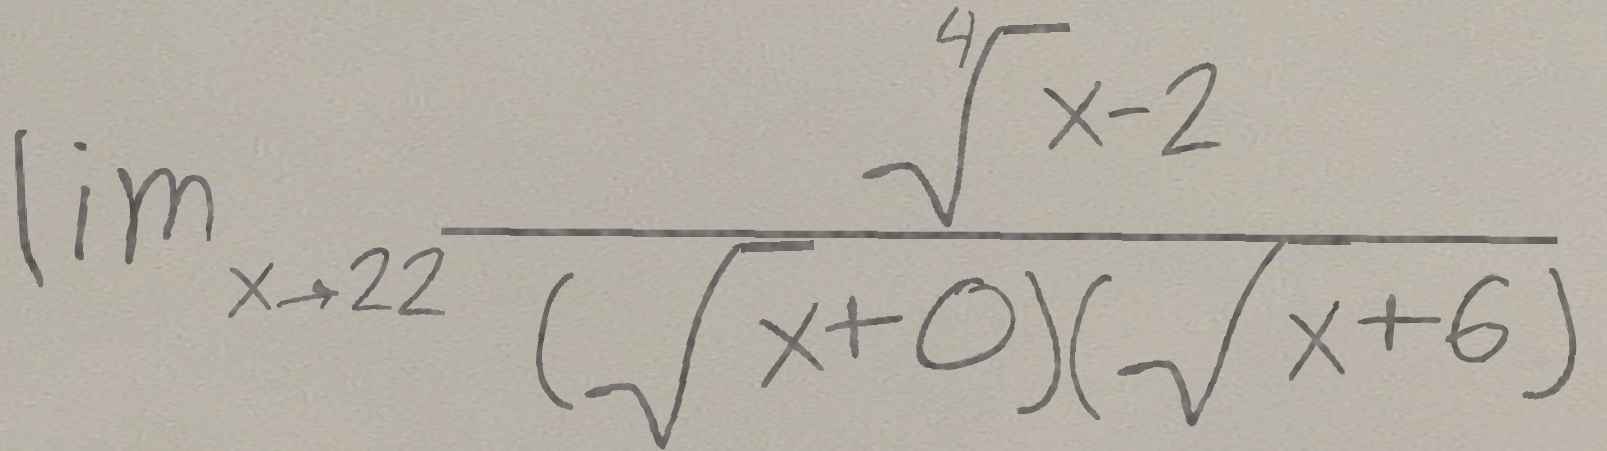 \lim_{x \to 22} \frac{\sqrt[4]{x-2}}{(\sqrt{x+0})(\sqrt{x+6})}